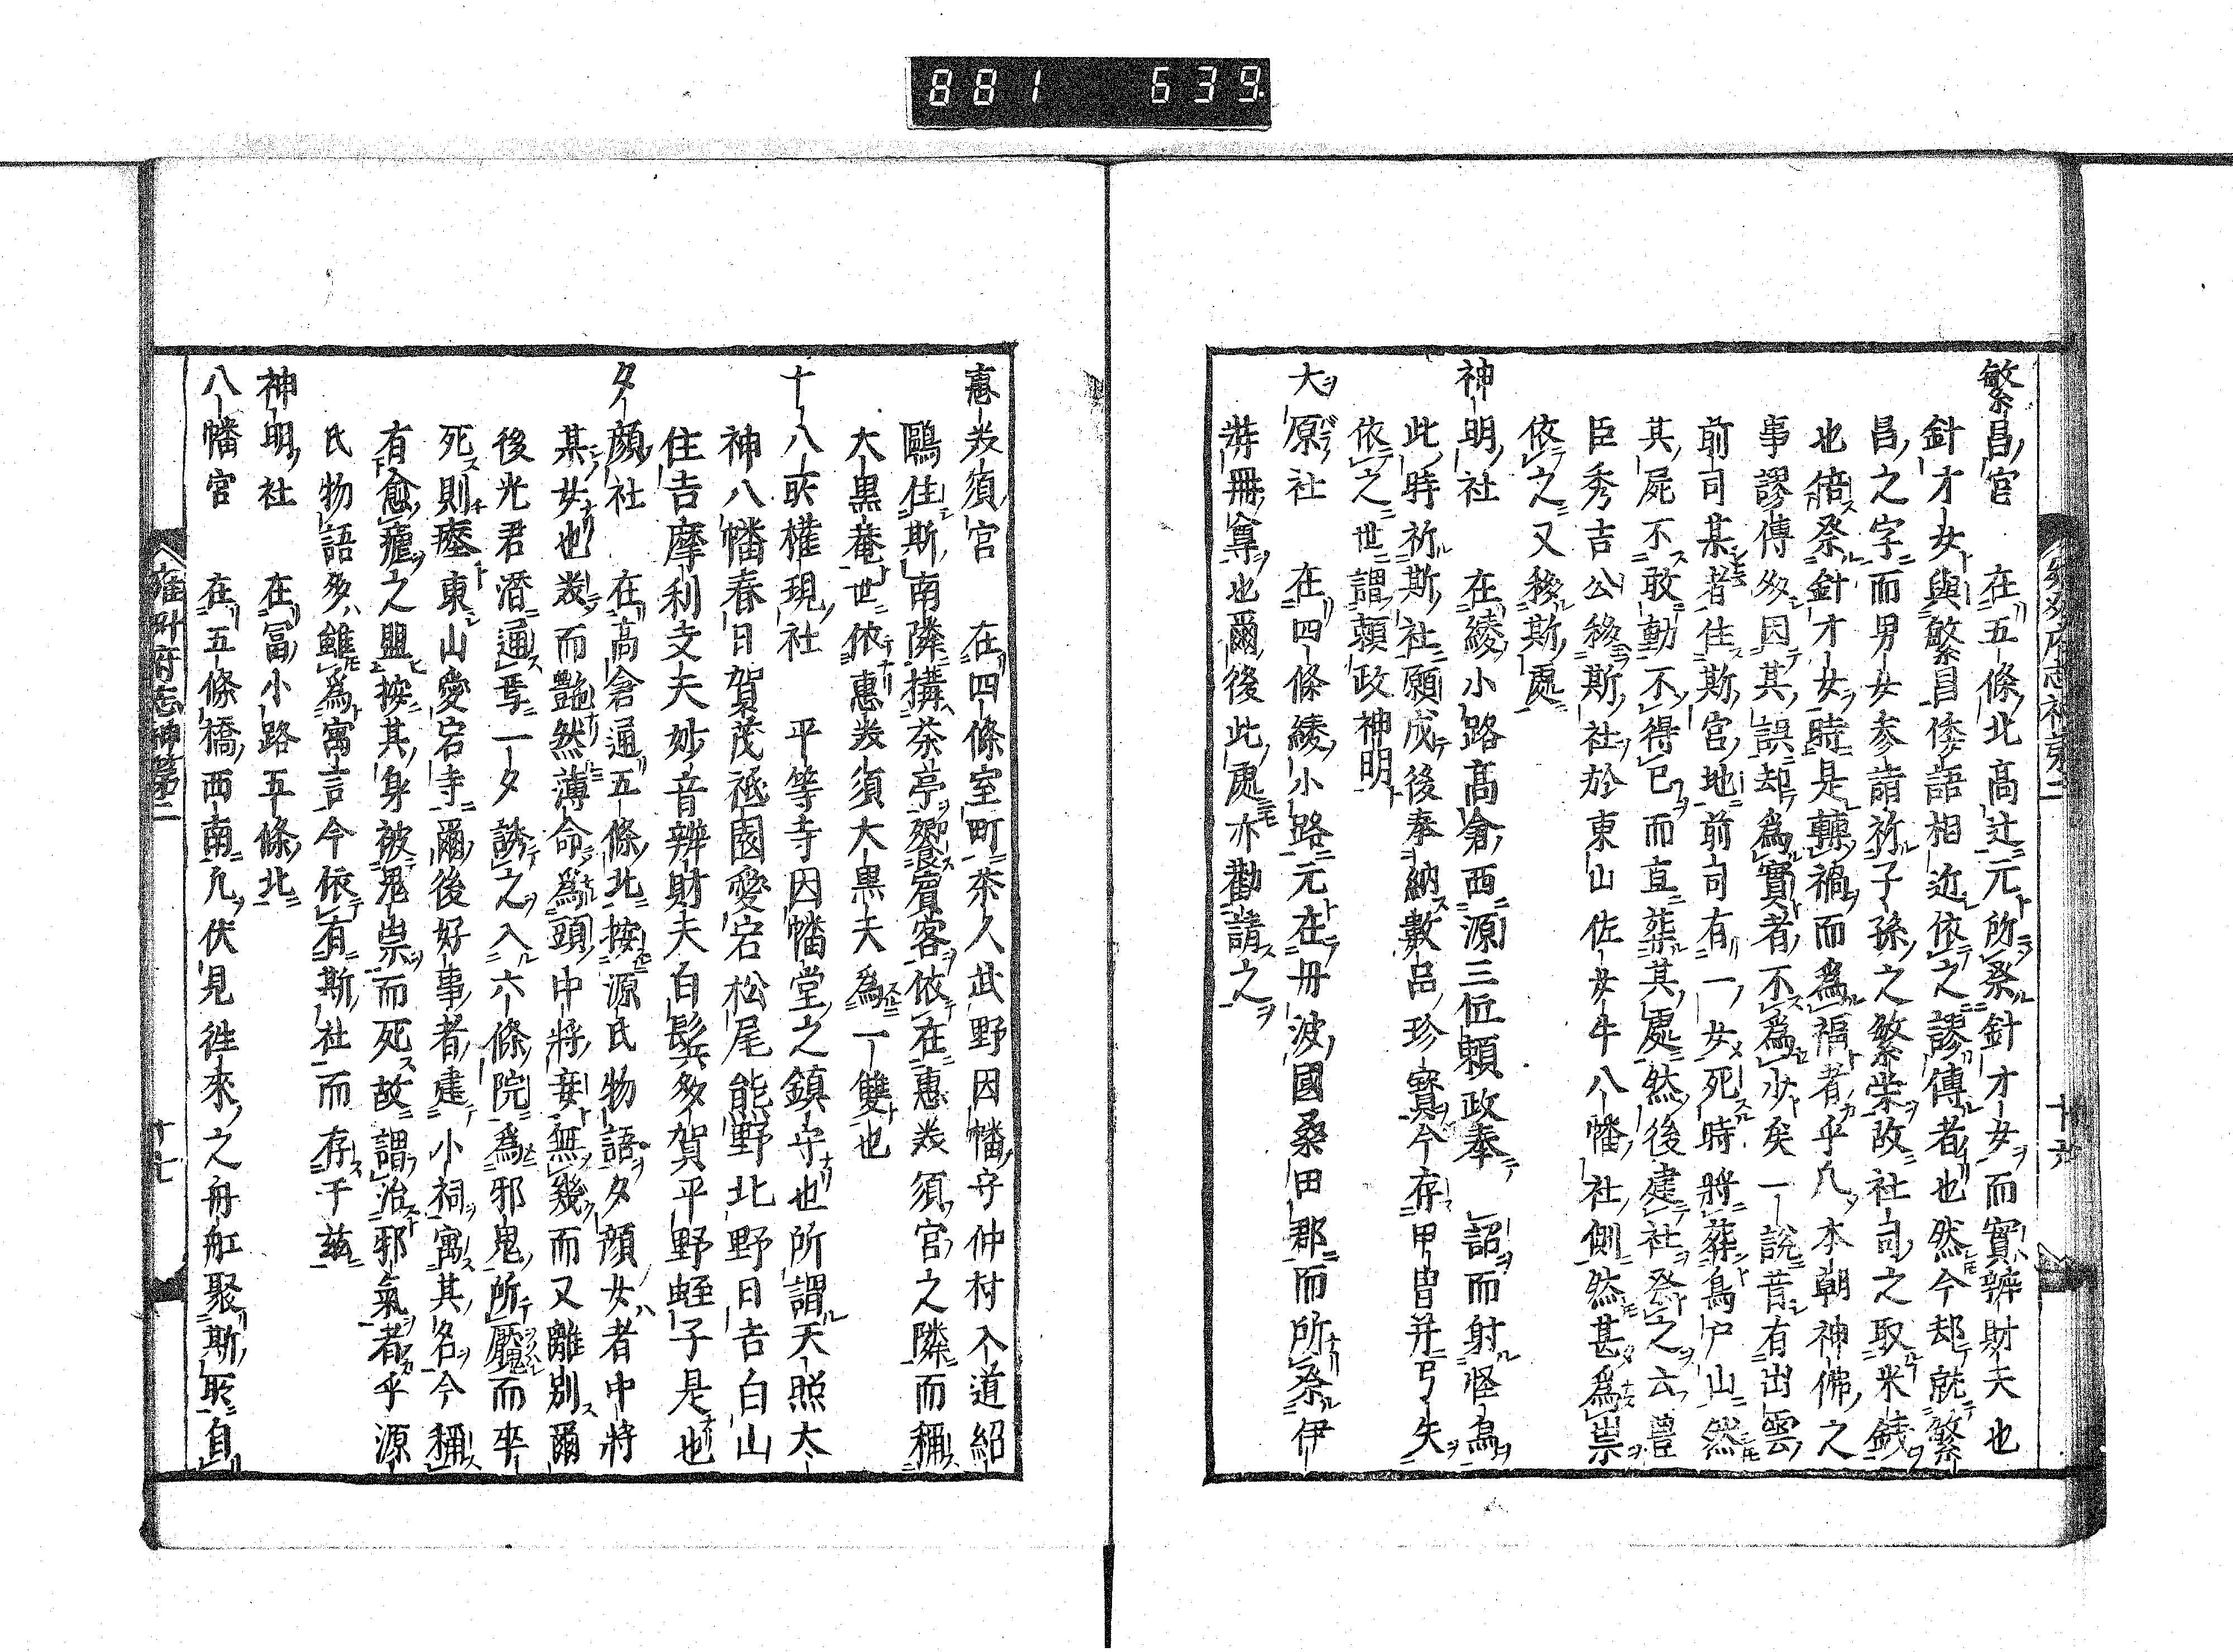 881 639
繁昌宮 在五條北高辻元所祭針才女而實辨財天也
針才女與繁昌倭語相近依之謬傳者也然今却就繁
昌之字而男女参詣祈子孫之繁栄故社司之取米錢
也倍祭針才女時是轉禍而為福者乎凡本朝神佛之
事謬傳多因其誤却為實者不為少矣一說昔有出雲
前司某者住斯宮地前司有一女死時將葬鳥戸山然
其屍不敢動不得已而直葬其處然後建社祭之云豊
臣秀吉公移斯社於東山佐女牛八幡社側然甚為祟
依之又移斯處
神明社 在綾小路高倉西源三位頼政奉 詔而射怪鳥
此時祈斯社願成後奉納數品珍寳今存甲冑并弓矢
依之世謂頼政神明
大原社 在四條綾小路元在丹波國桑田郡而所祭伊
弉冊尊也爾後此處亦勸請之
雍州府志神第二 十六
恵美須宮 在四條室町茶人武野因幡守仲村入道紹
鷗住斯南隣搆茶亭饗賓客依在恵美須宮之隣而稱
大黒菴世依恵美須大黒夫為一雙也
十八所權現社 平等寺因幡堂之鎮守也所謂天照大
神八幡春日賀茂祗園愛宕松尾熊野北野日吉白山
住吉摩利支天妙音辨財天白髭兵多賀平野蛭子是也
夕顔社 在高倉通五條北按源氏物語夕顔女者中將
某女也美而艶然薄命為頭中將妾無幾而又離別爾
後光君潛通焉一夕誘之入六條院為邪鬼所魘而卒
死則瘞東山愛宕寺爾後好事者建小祠寓其名今稱
有愈瘧之盟按其身被鬼祟而死故謂治邪氣者乎源
氏物語多雖為寓言今依有斯社而存于茲
神明社 在冨小路五條北
八幡宮 在五條橋西南凡伏見徃來之舟舡聚斯所自
雍州府志神第二 十七